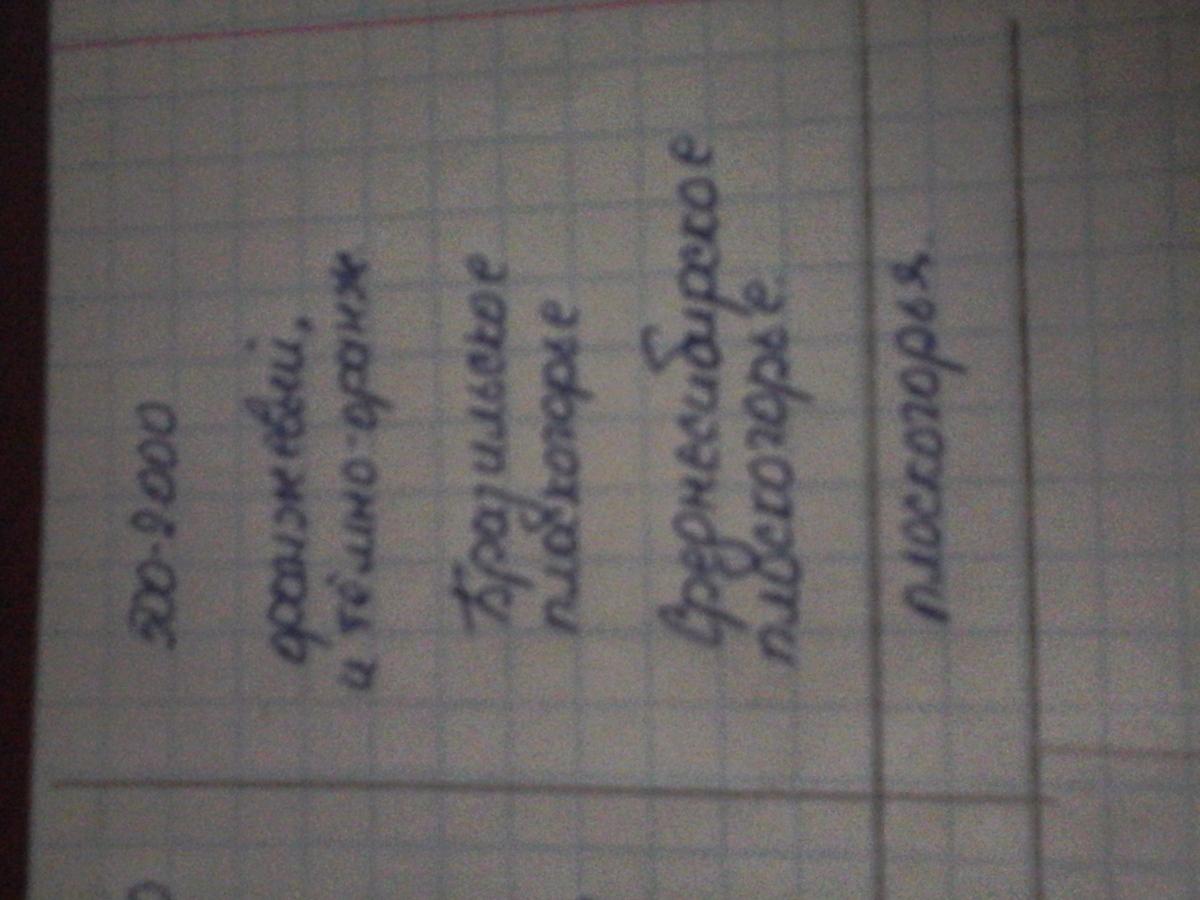 500-2000
оранжевый,
и тёмно-оранж
Бразильское
плоскогорье
Среднесибирское
плоскогорье.
плоскогорья.